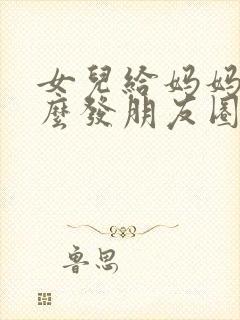 女兒給媽媽
麼發朋友圈
魯思